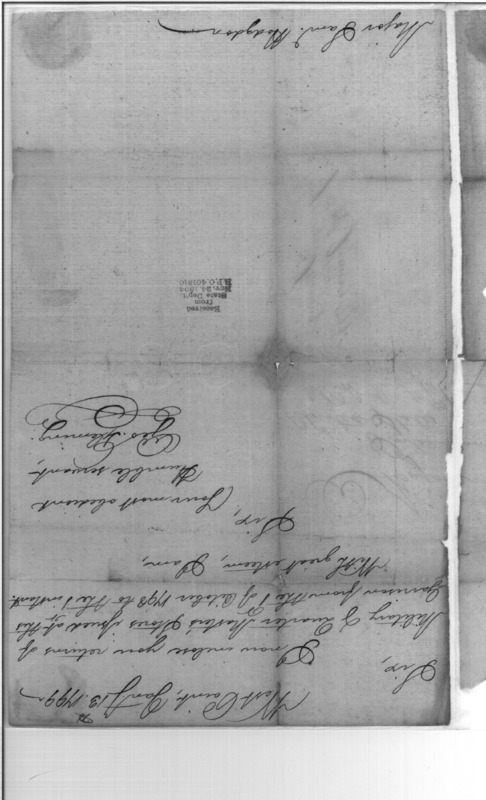 West Point, Jany. 13th 1799
Sir,
I now inclose you returns of
Military & Quarter Master's Stores issued at this
Garrison from the 1st of October 1798 to the 1 instant.
With great esteem, I am,
Sir,
Your most obedient
Humble servant,
Geo. Fleming.
Received
from
State Dep't.
Nov. 24, 1894
R.P.O. 401810
Major Saml. Hodgdon